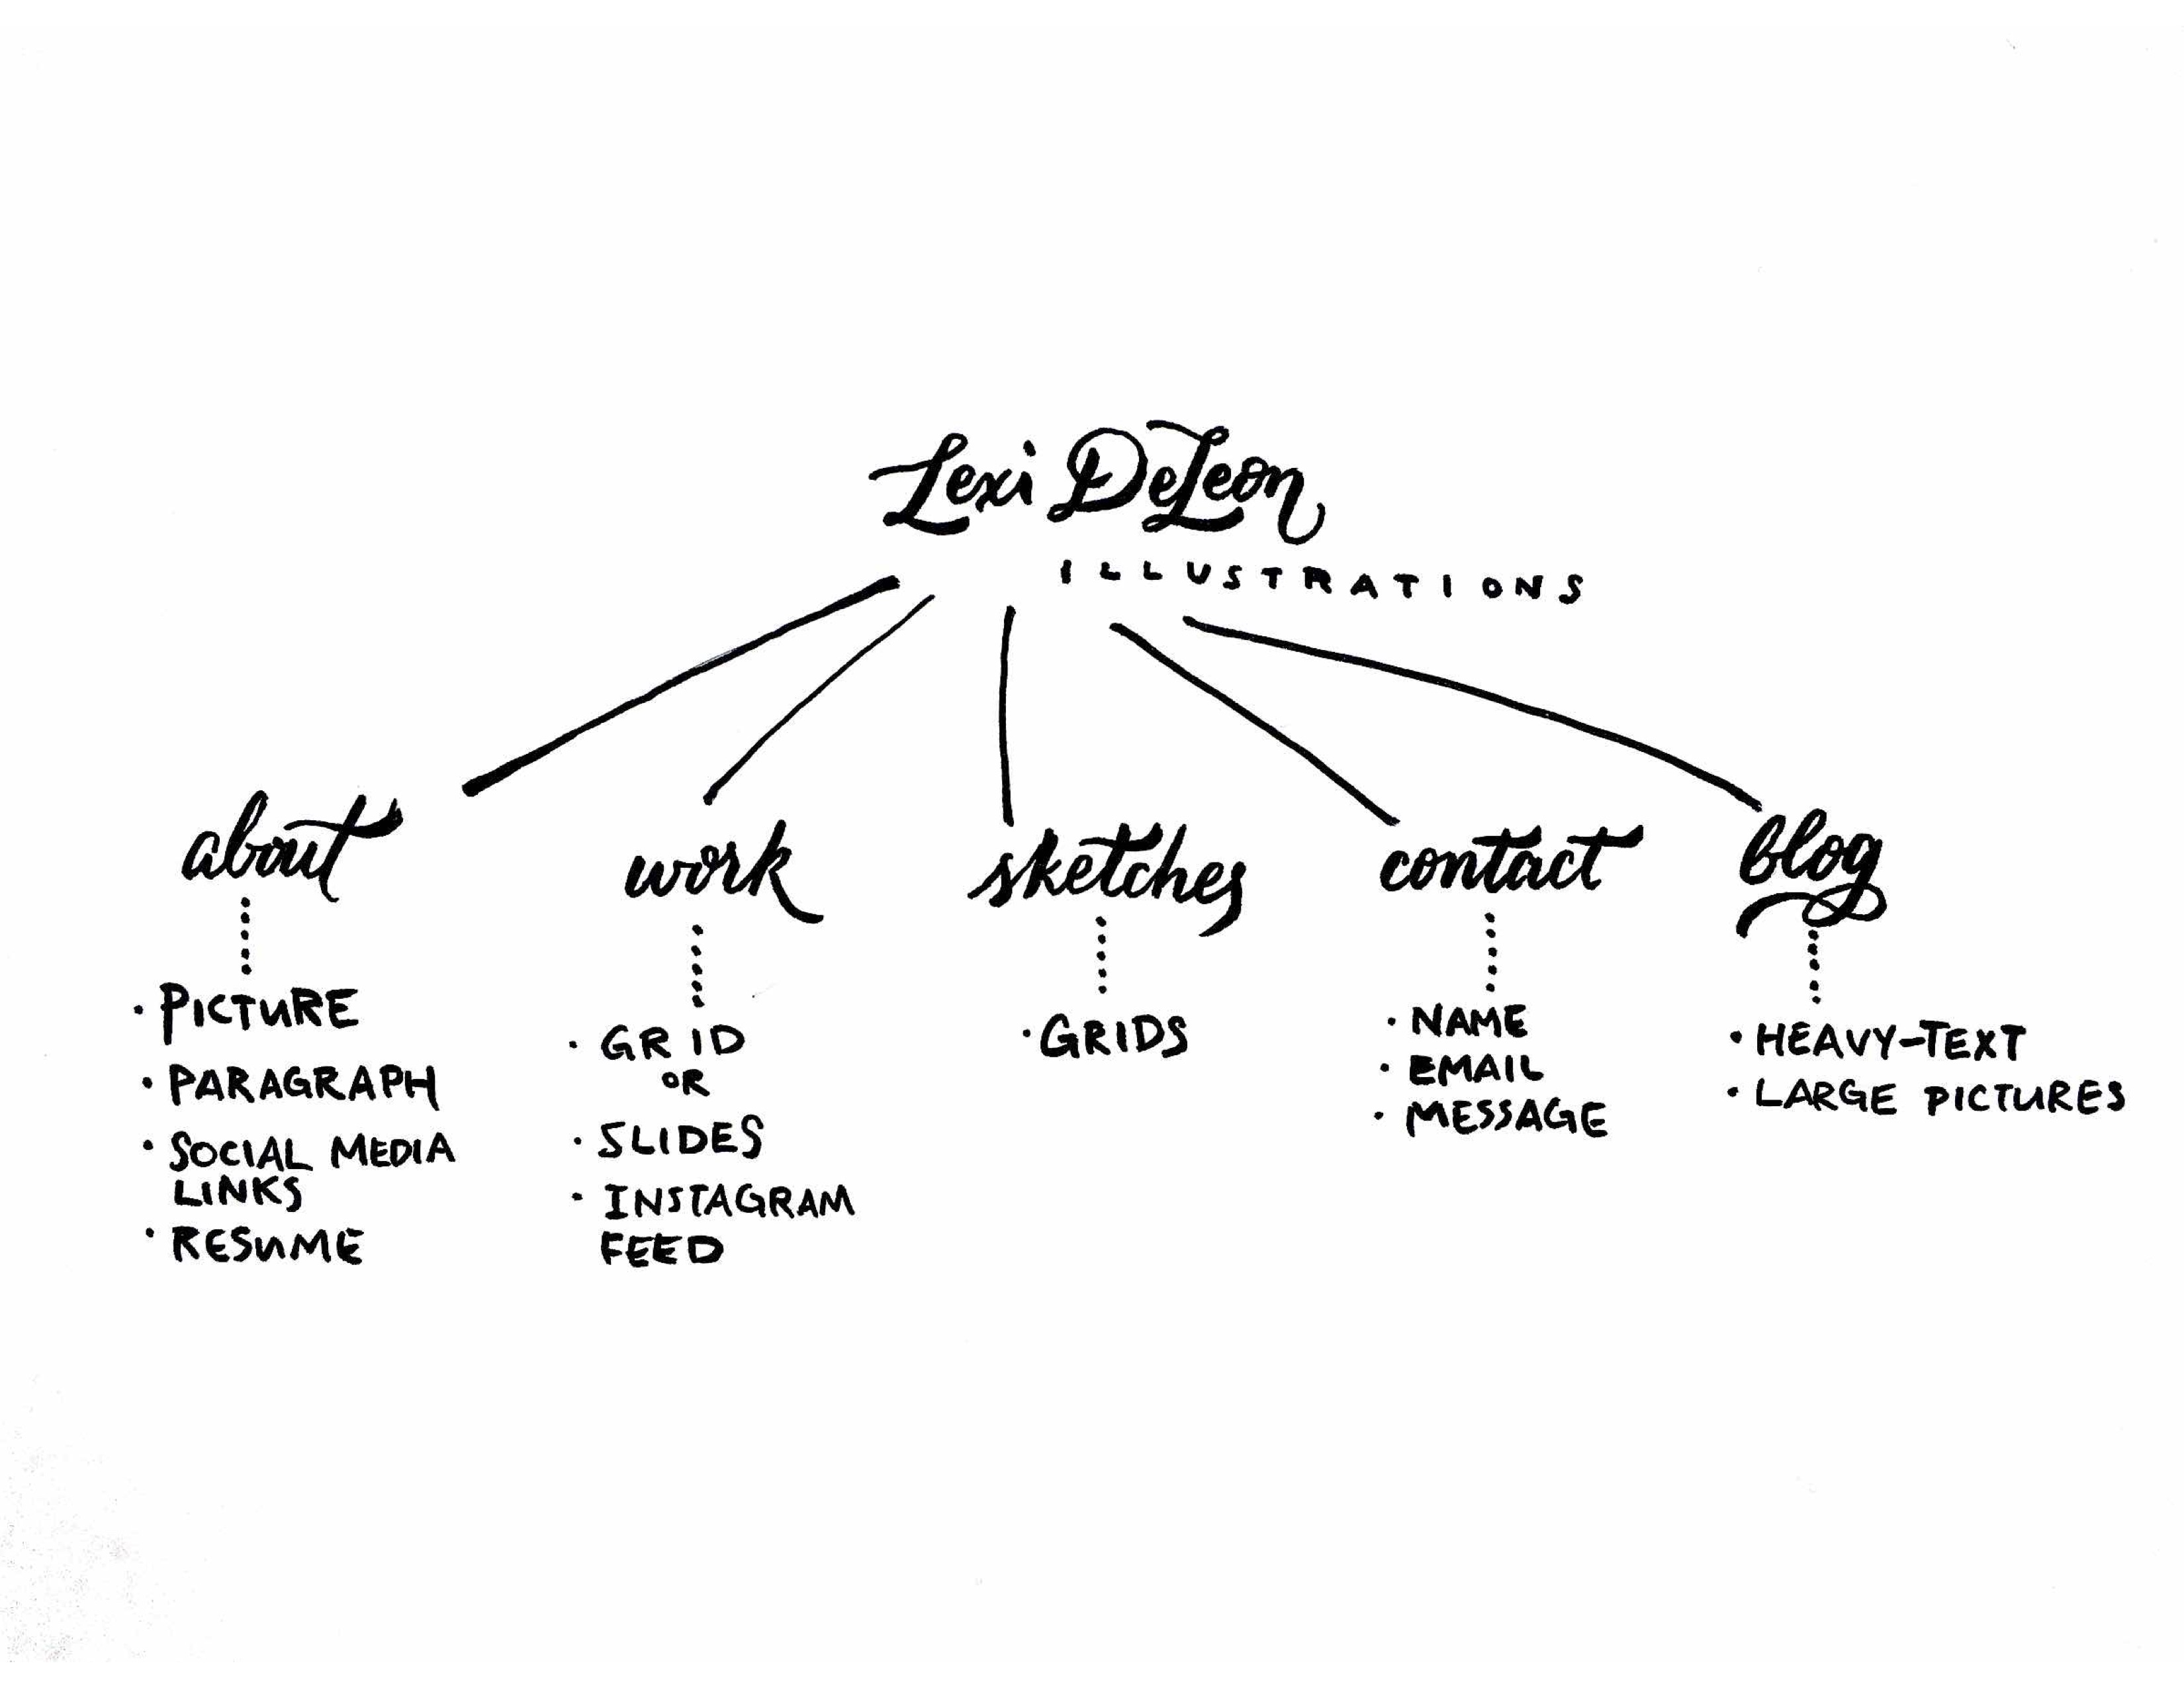 Lexi DeLeon
ILLUSTRATIONS
about
· PICTURE
· PARAGRAPH
· SOCIAL MEDIA
LINKS
· RESUME
work
· GRID
OR
· SLIDES
· INSTAGRAM
FEED
sketches
· GRIDS
contact
· NAME
· EMAIL
· MESSAGE
blog
· HEAVY-TEXT
· LARGE PICTURES